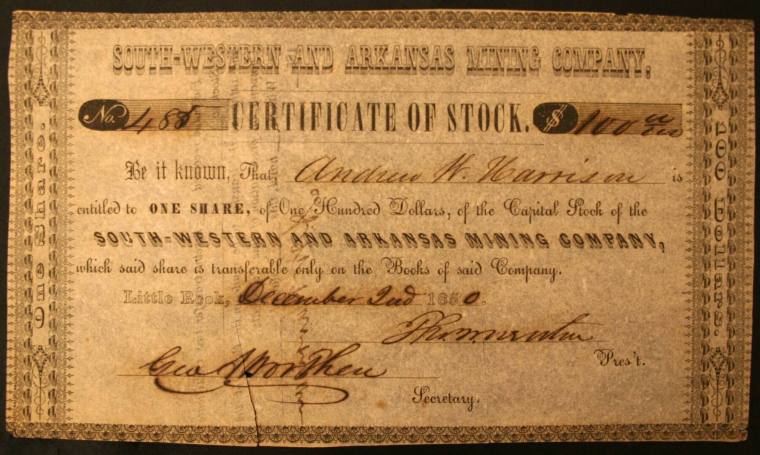 SOUTH-WESTERN AND ARKANSAS MINING COMPANY,
No. 485 CERTIFICATE OF STOCK. $ 100
Be it known, That Andrew W. Harrison is
entitled to ONE SHARE, of One Hundred Dollars, of the Capital Stock of the
SOUTH-WESTERN AND ARKANSAS MINING COMPANY,
which said share is transferable only on the Books of said Company.
Little Rock, December 2nd 1850.
Pres't.
Geo A Worthen
Secretary.
One Share.
100 Dollars.